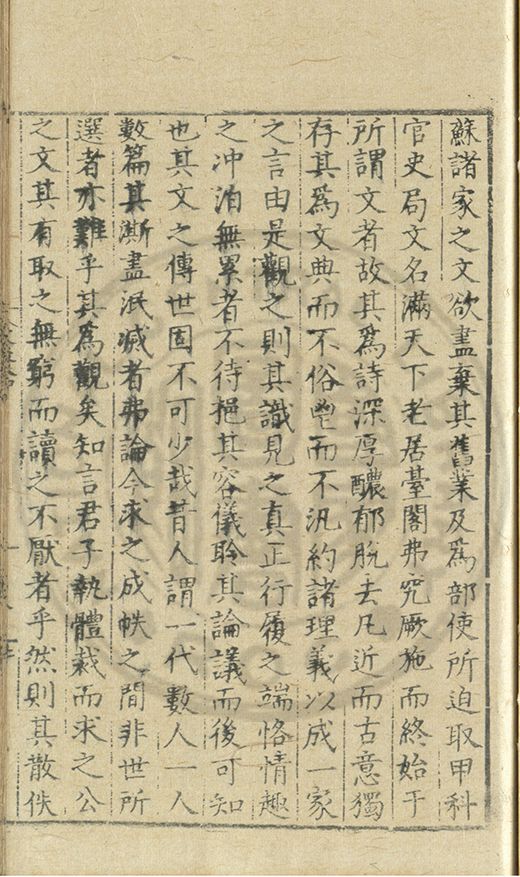 蘇諸家之文欲盡棄其舊業及爲部使所迫取甲科
官史局文名滿天下老居臺閣弗究厥施而終始于
所謂文者故其爲詩深厚醲郁脫去凡近而古意獨
存其爲文典而不俗豐而不汎約諸理義以成一家
之言由是觀之則其識見之真正行履之端恪情趣
之冲泊無累者不待挹其容儀聆其論議而後可知
也其文之傳世固不可少哉昔人謂一代數人一人
數篇其澌盡泯滅者弗論今求之成帙之間非世所
選者亦難乎其爲觀矣知言君子執體裁而求之公
之文其有取之無窮而讀之不厭者乎然則其散佚